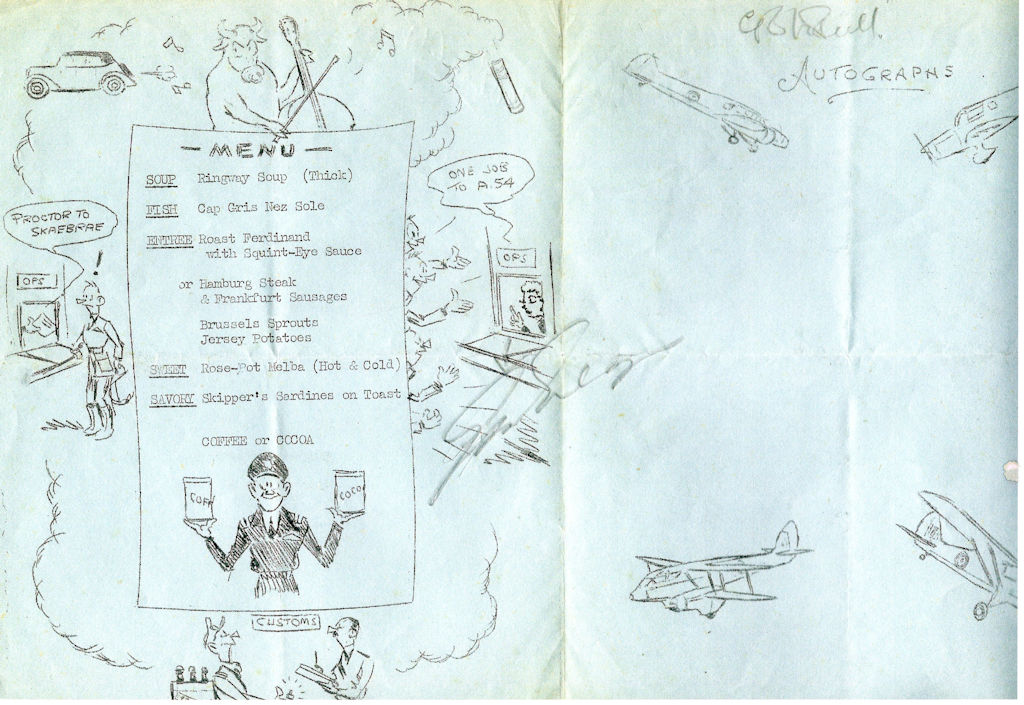 MENU
SOUP Ringway Soup (Thick)
FISH Cap Gris Nez Sole
ENTREE Roast Ferdinand
with Squint-Eye Sauce
or Hamburg Steak
& Frankfurt Sausages
Brussels Sprouts
Jersey Potatoes
SWEET Rose-Pot Melba (Hot & Cold)
SAVORY Skipper's Sardines on Toast
COFFEE or COCOA
COFF
COCO
CUSTOMS
PROCTOR TO
SKAEBRAE
!
OPS
ONE JOB
TO A.54
OPS
AUTOGRAPHS